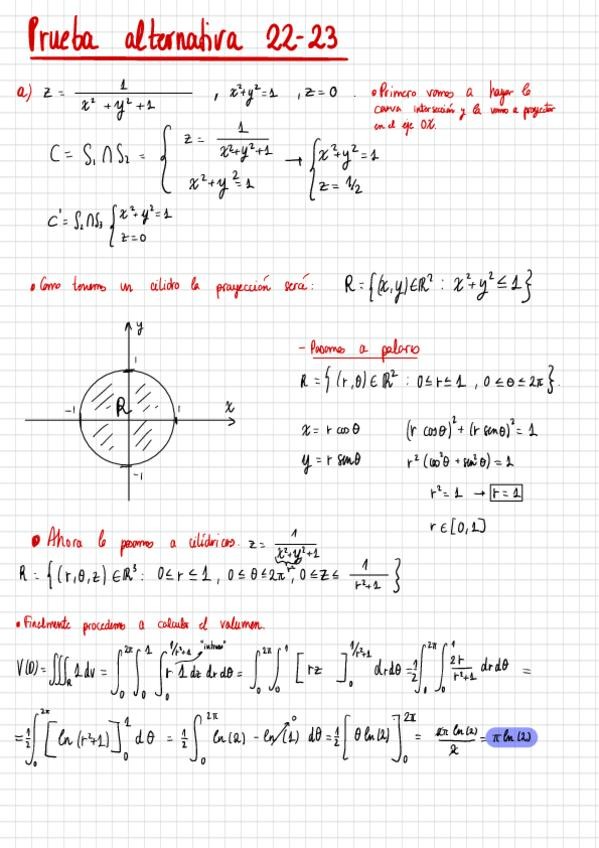 Prueba alternativa 22-23
a) z = 1/(x² + y² + 1) , x²+y²=1 , z=0 . • Primero vamos a hayar la
curva intersección y la vamos a proyectar
en el eje OX.
C = S₁ ∩ S₂ = { z = 1/(x²+y²+1) → { x²+y²=1
x²+y²=1 z = 1/2
C' = S₂∩S₃ { x²+y²=1
z=0
• Como tenemos un cilidro la proyección será: R = {(x,y)∈ℝ² : x²+y² ≤ 1}
y
1
-1 R 1 x
-1
- Pasamos a polares
R = {(r,θ)∈ℝ² : 0≤r≤1 , 0≤θ≤2π}.
x = r cosθ (r cosθ)² + (r senθ)² = 1
y = r senθ r²(cos²θ + sen²θ) = 1
r² = 1 → r = 1
r ∈ [0,1]
• Ahora lo pasamos a cilídricas. z = 1/(x²+y²+1)
r²
R = {(r,θ,z)∈ℝ³ : 0≤r≤1 , 0≤θ≤2π , 0≤z≤ 1/(r²+1)}
• Finalmente procedemos a calcular el volumen.
V(D) = ∭_R 1 dv = ∫₀^2π ∫₀^1 ∫₀^1/r²+1 r 1 dz dr dθ = ∫₀^2π ∫₀^1 [rz]₀^1/r²+1 dr dθ = 1/2 ∫₀^2π ∫₀^1 2r/(r²+1) dr dθ =
= 1/2 ∫₀^2π [ln(r²+1)]₀^1 dθ = 1/2 ∫₀^2π ln(2) - ln(1) 0 dθ = 1/2 [θ ln(2)]₀^2π = 2π ln(2)/2 = π ln(2)